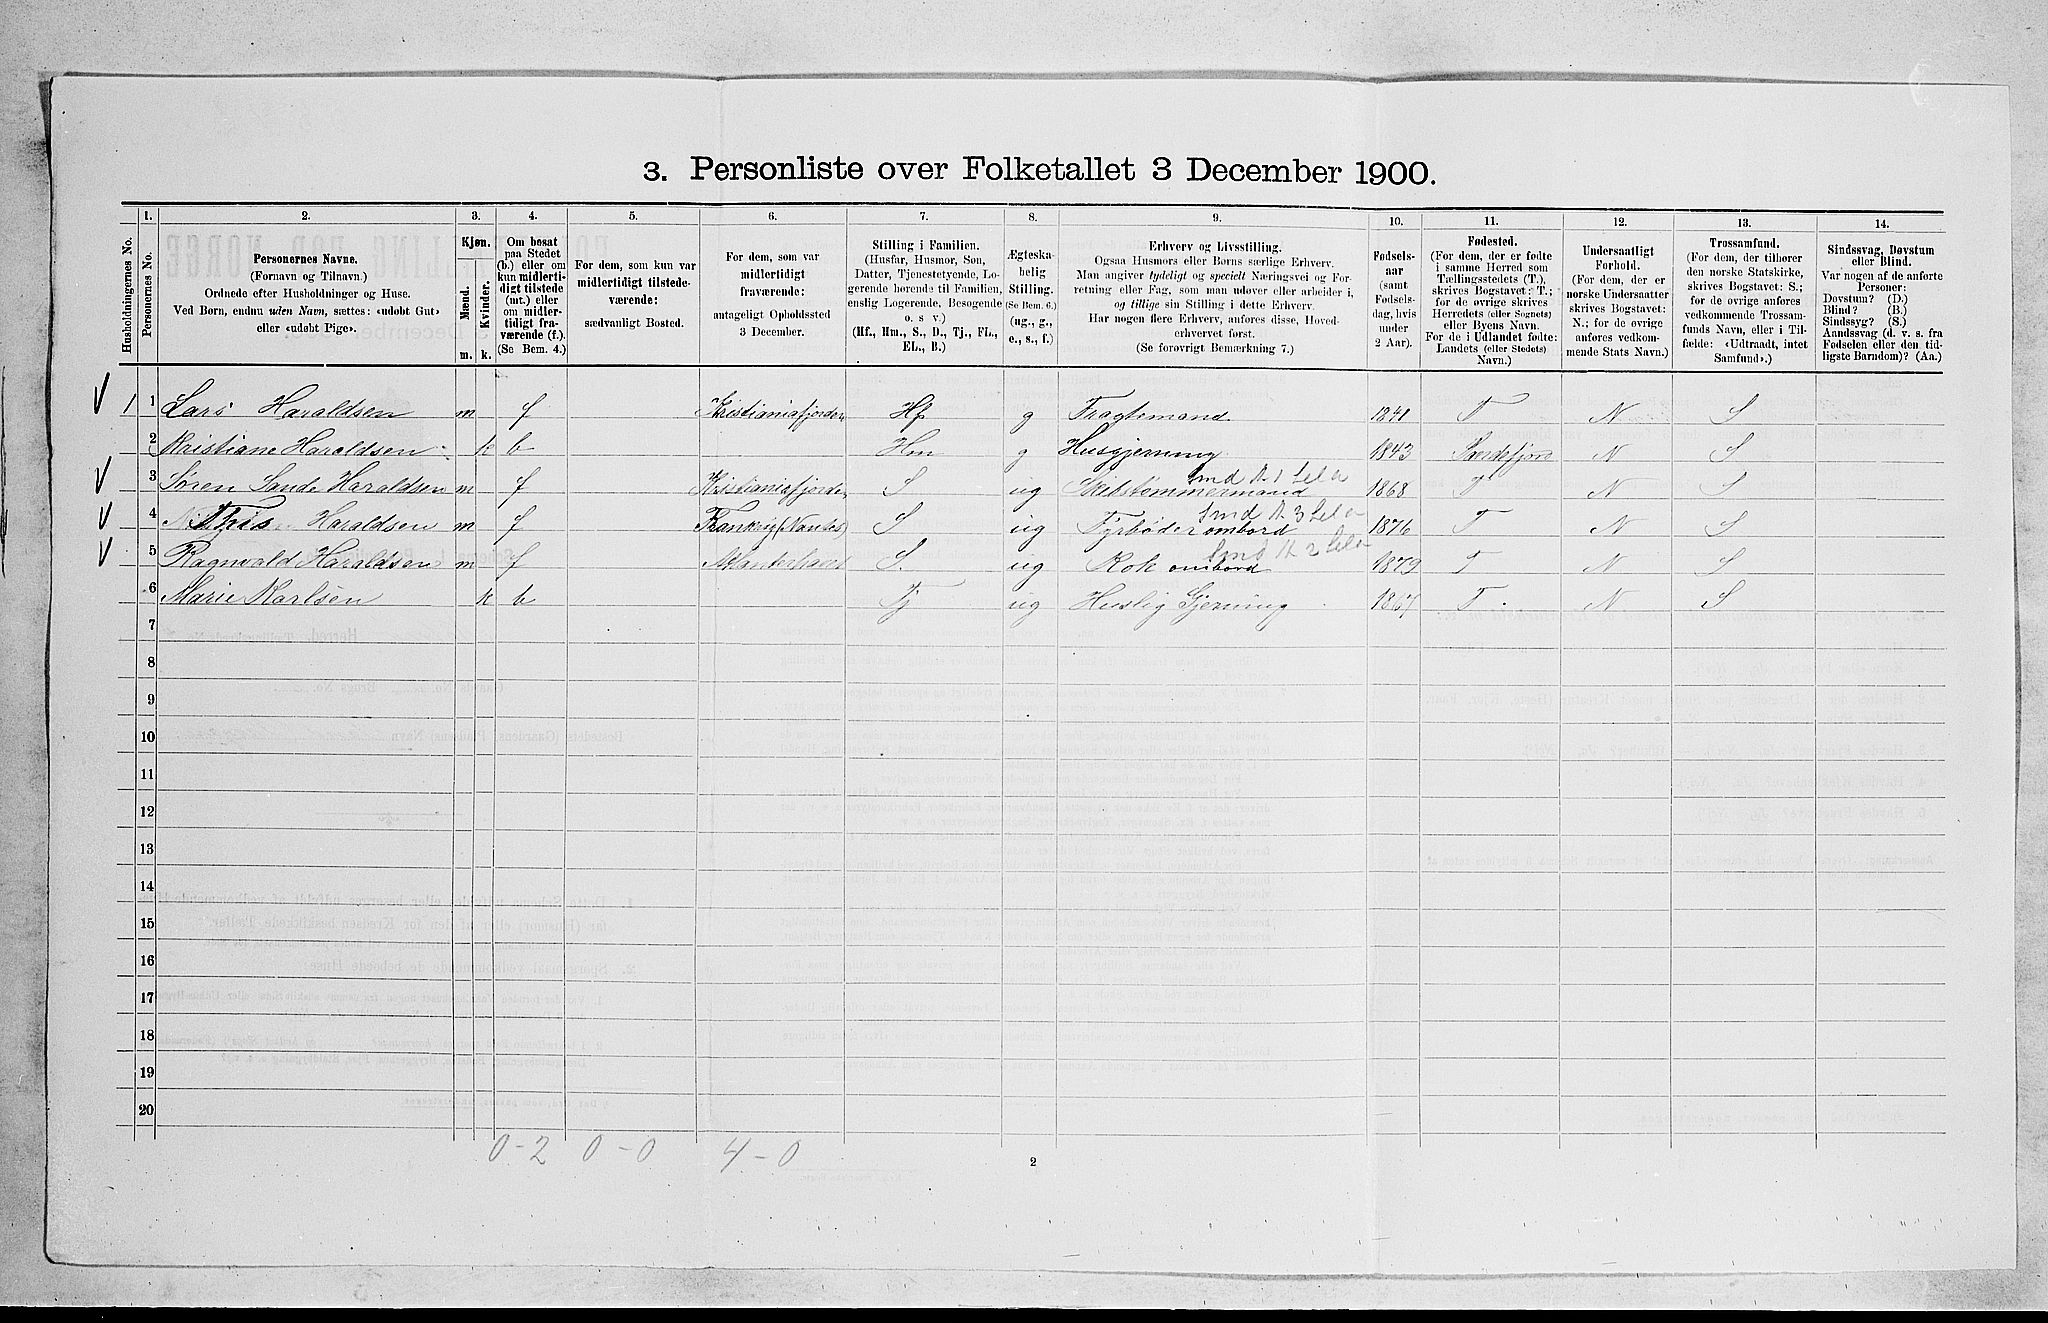 3. Personliste over Folketallet 3 December 1900.
Husholdningernes No.
1. Personernes No.
2. Personernes Navne. (Fornavn og Tilnavn.) Ordnede efter Husholdninger og Huse. Ved Børn, endnu uden Navn, sættes: «udøbt Gut» eller «udøbt Pige».
3. Kjøn. Mænd. m. Kvinder. k.
4. Om bosat paa Stedet (b.) eller om kun midlertidigt tilstede (mt.) eller om midlertidigt fraværende (f.) (Se Bem. 4.)
5. For dem, som kun var midlertidigt tilstedeværende: sædvanligt Bosted.
6. For dem, som var midlertidigt fraværende: antageligt Opholdssted 3 December.
7. Stilling i Familien. (Husfar, Husmor, Søn, Datter, Tjenestetyende, Logerende hørende til Familien, enslig Logerende, Besøgende o. s. v.) (Hf., Hm., S., D., Tj., FL., EL., B.)
8. Ægteskabelig Stilling. (Se Bem. 6.) (ug., g., e., s., f.)
9. Erhverv og Livsstilling. Ogsaa Husmors eller Børns særlige Erhverv. Man angiver tydeligt og specielt Næringsvei og Forretning eller Fag, som man udøver eller arbeider i, og tillige sin Stilling i dette Erhverv. Har nogen flere Erhverv, anføres disse, Hovederhvervet først. (Se forøvrigt Bemærkning 7.)
10. Fødselsaar (samt Fødselsdag, hvis under 2 Aar).
11. Fødested. (For dem, der er fødte i samme Herred som Tællingsstedet (T.), skrives Bogstavet: T.; for de øvrige skrives Herredets (eller Sognets) eller Byens Navn. For de i Udlandet fødte: Landets (eller Stedets) Navn.)
12. Undersaatligt Forhold. (For dem, der er norske Undersaatter skrives Bogstavet: N.; for de øvrige anføres vedkommende Stats Navn.)
13. Trossamfund. (For dem, der tilhører den norske Statskirke, skrives Bogstavet: S.; for de øvrige anføres vedkommende Trossamfunds Navn, eller i Tilfælde: «Udtraadt, intet Samfund».)
14. Sindssvag, Døvstum eller Blind. Var nogen af de anførte Personer: Døvstum? (D.) Blind? (B.) Sindssyg? (S.) Aandssvag (d. v. s. fra Fødselen eller den tidligste Barndom)? (Aa.)
1 1 Lars Haraldsen m f Kristianiafjorden Hf g Fragtemand 1840 T N S
2 Kristiane Haraldsen k b Hm g Husgjerning 1843 Sandefjord N S
3 Søren Sande Haraldsen m f Kristianiafjorden S ug Skibstømmermand 1868 T N S
4 This Haraldsen m f Frankrig (Nantes) S ug Fyrbøder ombord 1876 T N S
5 Ragnvald Haraldsen m f Atlanterhavet S. ug Kok ombord 1879 T N S
6 Marie Karlsen k b Tj ug Huslig Gjerning 1867 T N S
7
8
9
10
11
12
13
14
15
16
17
18
19
20
0-2 0-0 4-0
2